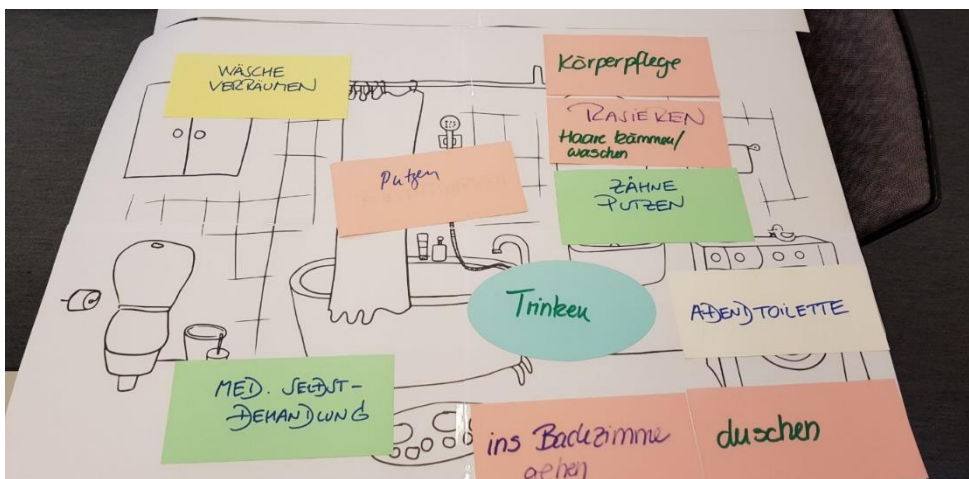 WÄSCHE
VERRÄUMEN
Körperpflege
RASIEREN
Haare kämmen/
waschen
Putzen
ZÄHNE
PUTZEN
Trinken
ABENDTOILETTE
MED. SELBST-
BEHANDLUNG
ins Badezimme
gehen
duschen